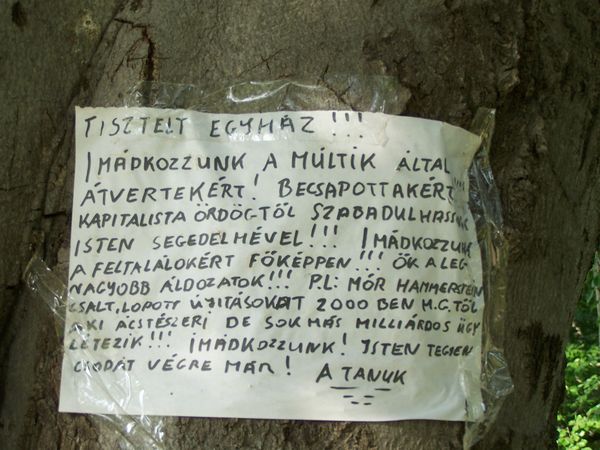 TISZTELT EGYHÁZ!!!
IMÁDKOZZUNK A MÚLTIK ÁLTAL
ÁTVERTEKÉRT! BECSAPOTTAKÉRT!!!
KAPITALISTA ÖRDÖGTŐL SZABADULHASSUNK
ISTEN SEGEDELMÉVEL!!! IMÁDKOZZUNK
A FELTALÁLOKÉRT FŐKÉPPEN!!! ŐK A LEG-
NAGYOBB ÁLDOZATOK!!! P.L: MÓR HAMMERSTEIN
CSALT, LOPOTT ÚJITÁSOKAT 2000 BEN M.G. TŐL
AKI ÁCSTÉSZERI DE SOK MÁS MILLIÁRDOS ÜGY
LÉTEZIK!!! IMÁDKOZZUNK! ISTEN TEGYEN
CSODÁT VÉGRE MÁR! A TANUK